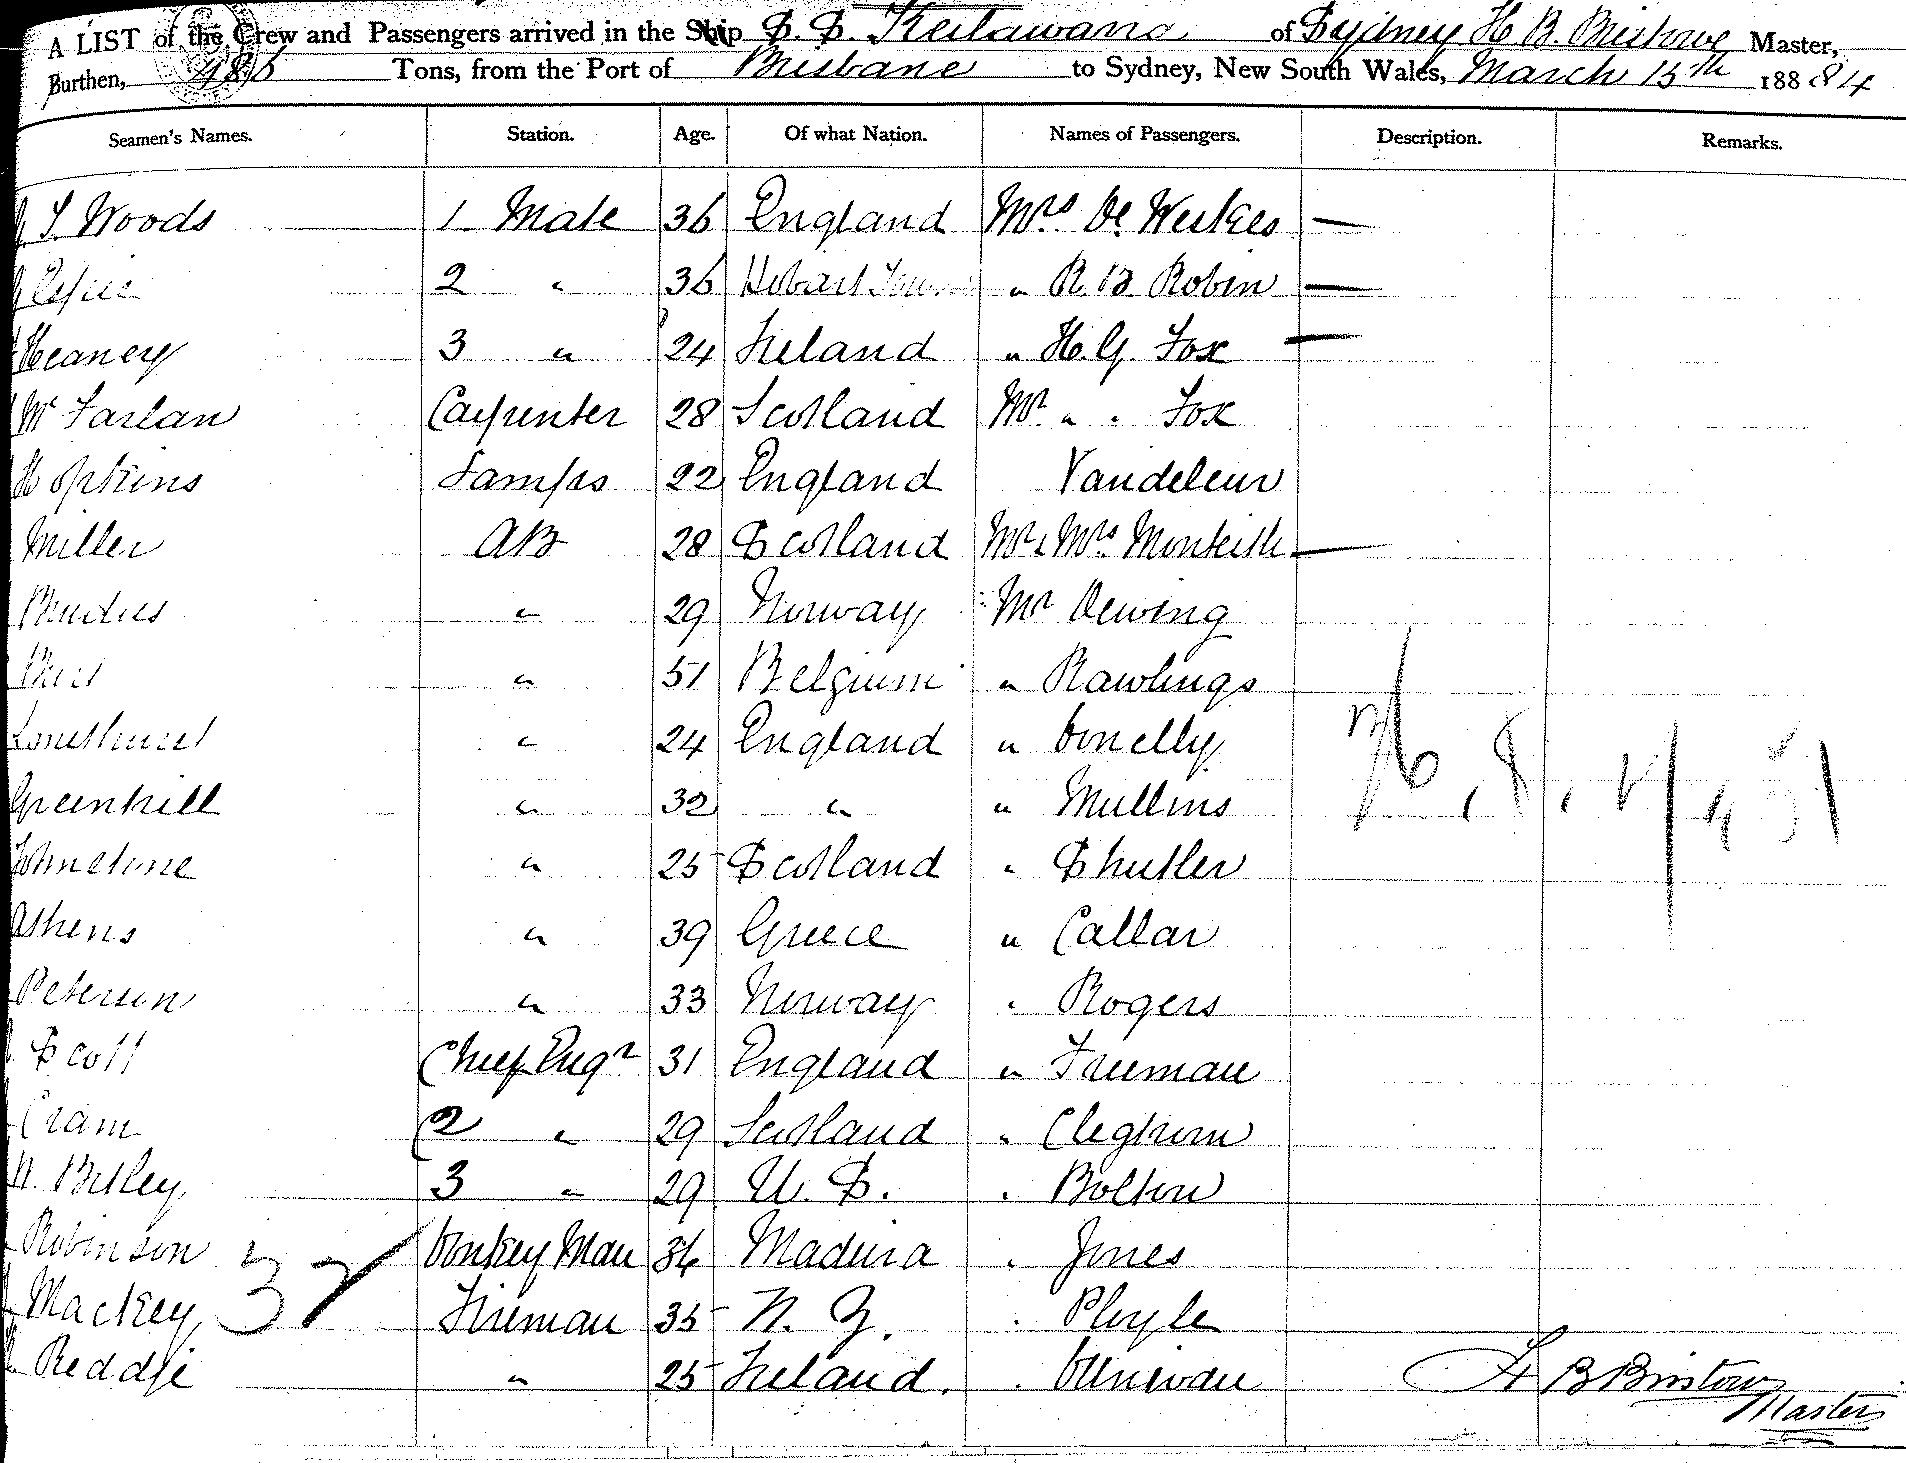 A LIST of the Crew and Passengers arrived in the Ship S. S. Keilawarra of Sydney H. B. Bristowe Master,
Burthen, 486 Tons, from the Port of Brisbane to Sydney, New South Wales, March 15th 188 84
Seamen's Names. Station. Age. Of what Nation. Names of Passengers. Description. Remarks.
Woods 1 Mate 36 England Mrs De Weskes —
2 " 36 Hobart Town " R. B. Robin —
Heaney 3 " 24 Ireland " H. G. Fox —
Mc Farlan Carpenter 28 Scotland Mr " " Fox
Hopkins Lamps 22 England Vandeleur
Miller AB 28 Scotland Mr & Mrs Monteith —
" 29 Norway Mr Dewing
" 51 Belgium " Rawlings
" 24 England " Donelly
Greenhill " 32 " " Mullins
Johnstone " 25 Scotland " Shutler
Athens " 39 Greece " Callar
Peterson " 33 Norway " Rogers
Scott Chief Engr 31 England " Freeman
Cram 2 " 29 Scotland " Cleghorn
Bisley 3 " 29 U. S. " Bolton
Robinson Donkey Man 36 Madeira " Jones
Mackey 37 Fireman 35 N. Z. "
Reddie " 25 Ireland. "
H B Bristowe
Master